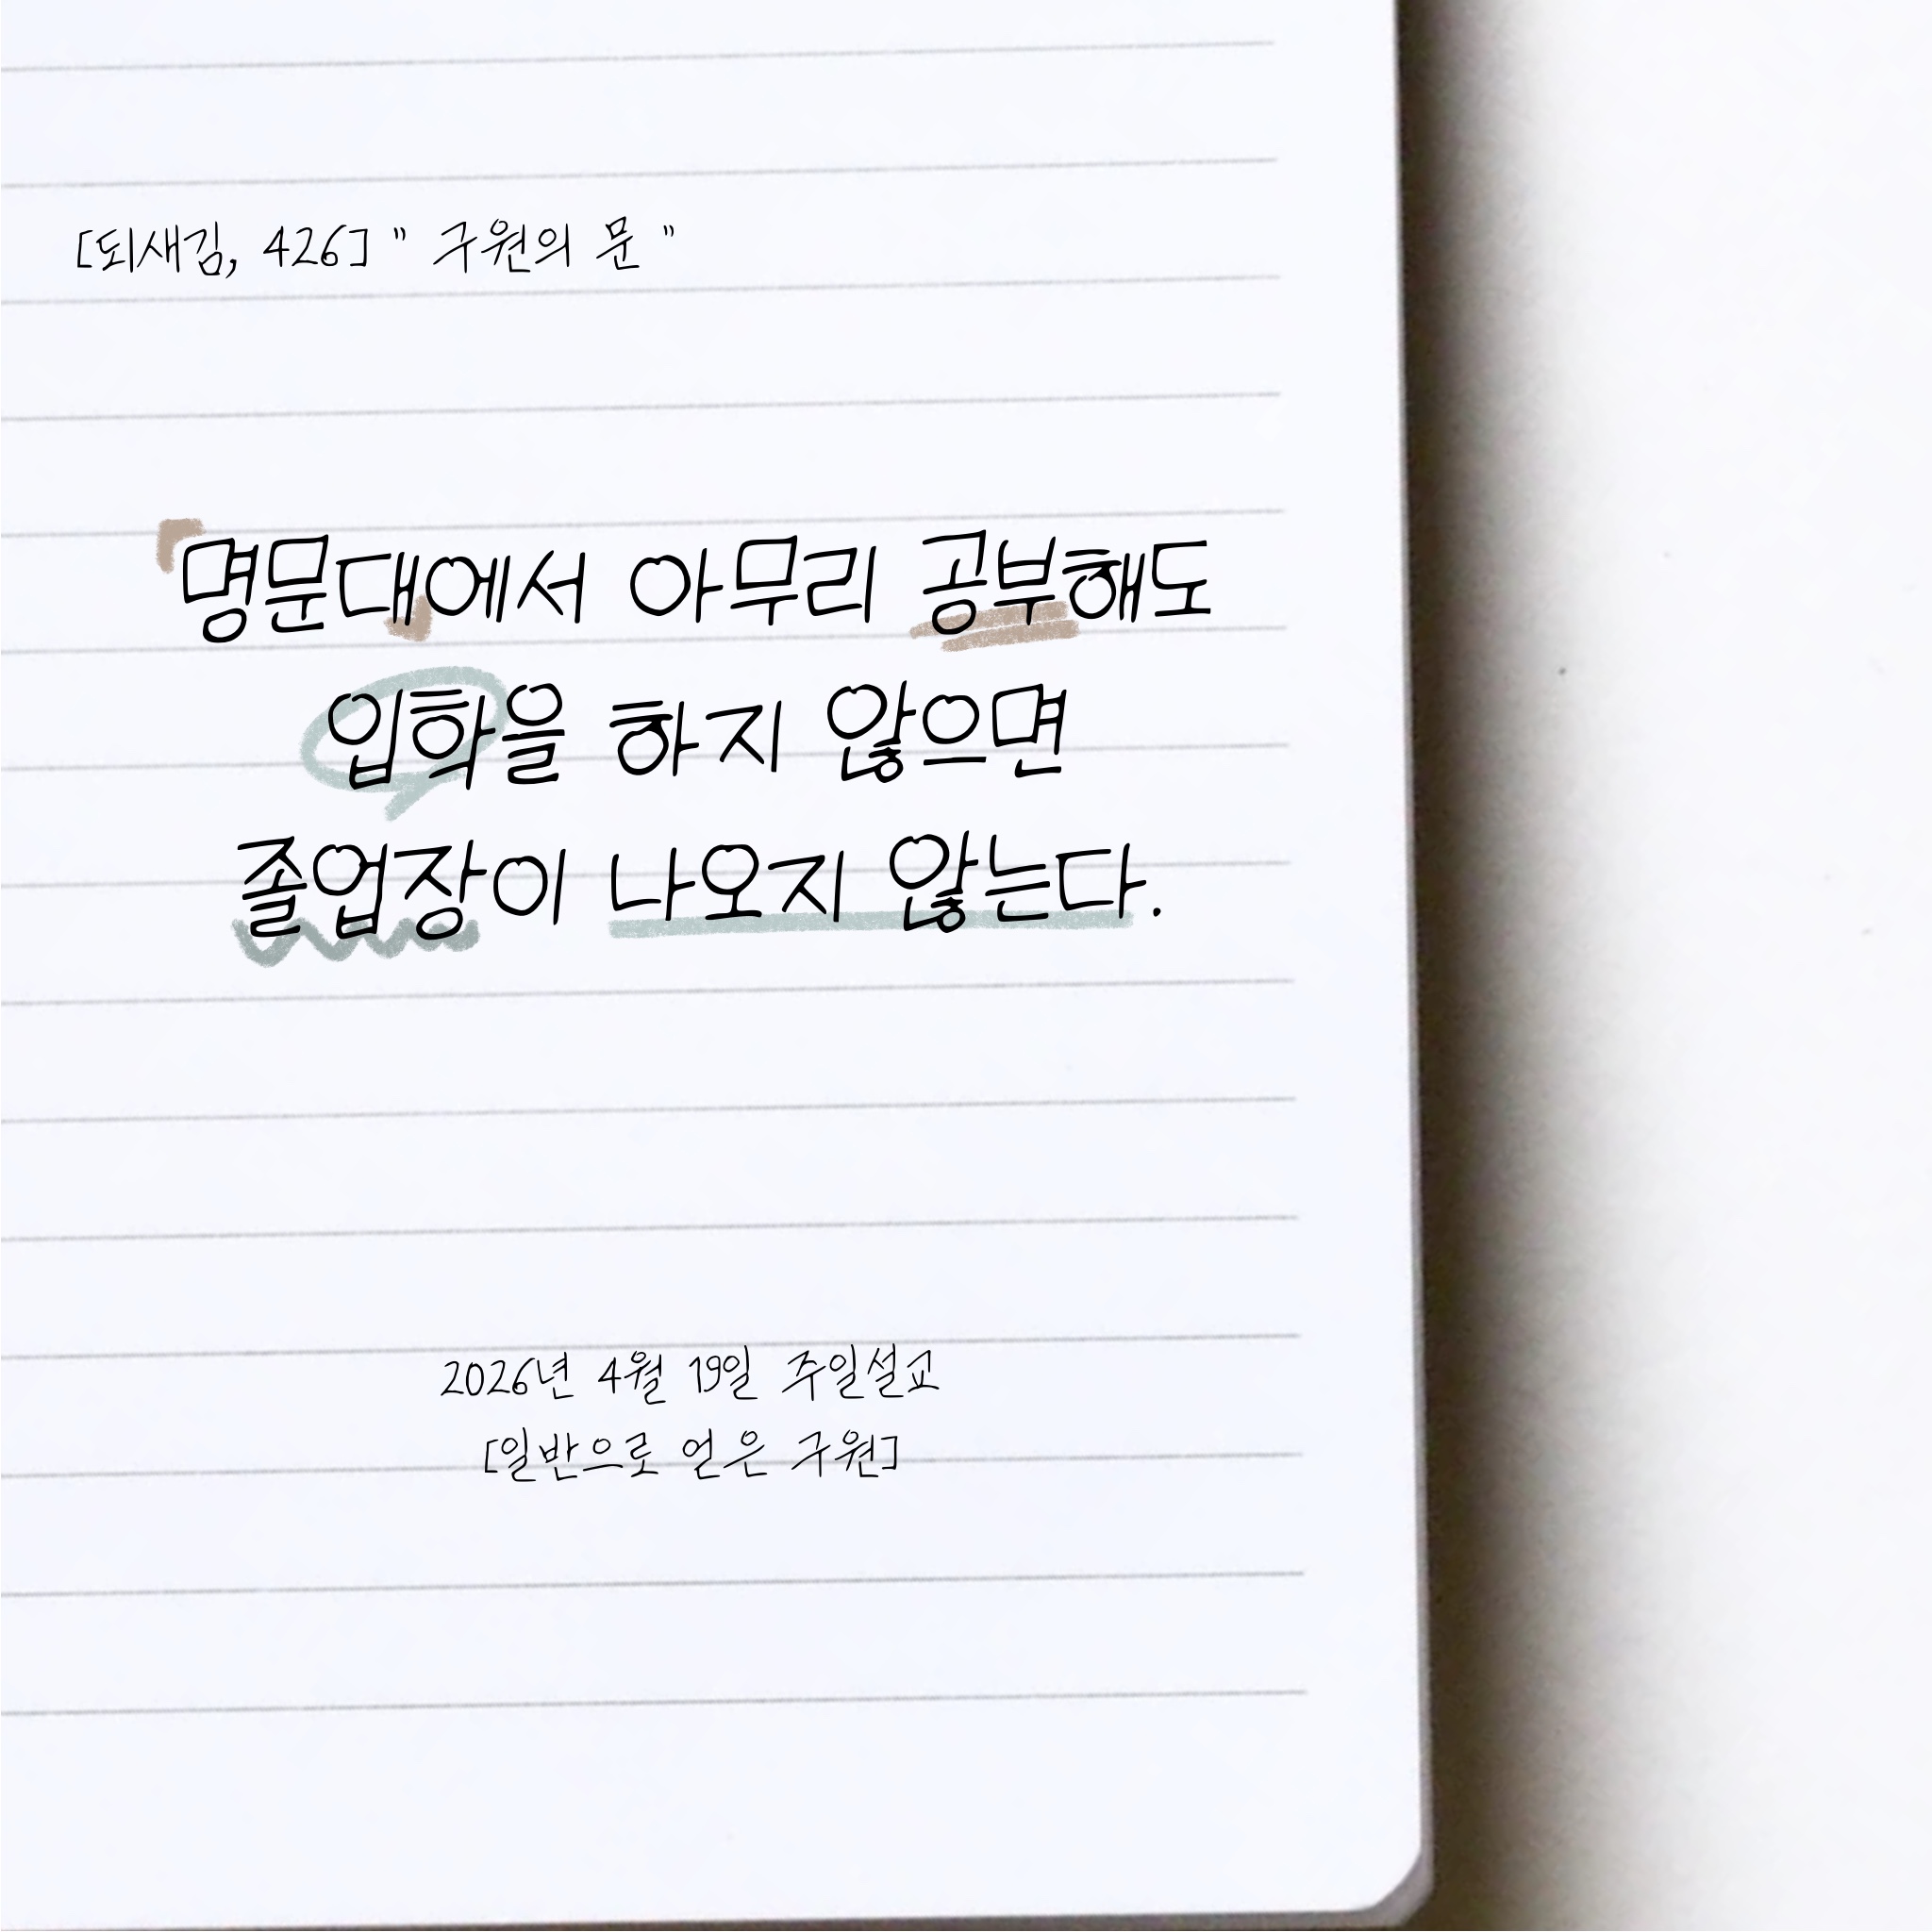 [되새김, 426] " 구원의 문 "
명문대에서 아무리 공부해도
입학을 하지 않으면
졸업장이 나오지 않는다.
2026년 4월 19일 주일설교
[일반으로 얻은 구원]